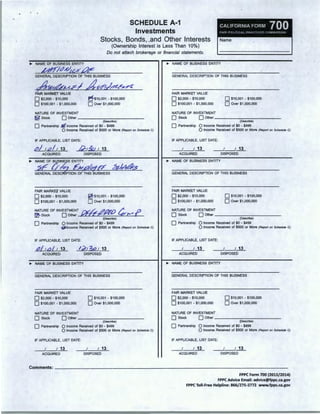 SCHEDULE A-1
Investments
Stocks, Bonds, and Other Interests
(Ownership Interest is Less Than 10%)
Do not attach brokerage or financial statements.
CALIFORNIA FORM 700
FAIR POLITICAL PRACTICES COMMISSION
Name
► NAME OF BUSINESS ENTITY
GENERAL DESCRIPTION OF THIS BUSINESS
FAIR MARKET VALUE
$2,000 - $10,000 $10,001 - $100,000
$100,001 - $1,000,000 Over $1,000,000
NATURE OF INVESTMENT
Stock Other
(Describe)
Partnership Income Received of $0 - $499
Income Received of $500 or More (Report on Schedule C)
IF APPLICABLE, LIST DATE:
01 / 01 / 13 / 13
ACQUIRED DISPOSED
► NAME OF BUSINESS ENTITY
SF City Employee
GENERAL DESCRIPTION OF THIS BUSINESS
FAIR MARKET VALUE
$2,000 - $10,000 $10,001 - $100,000
$100,001 - $1,000,000 Over $1,000,000
NATURE OF INVESTMENT
Stock Other Deferred Comp
(Describe)
Partnership Income Received of $0 - $499
Income Received of $500 or More (Report on Schedule C)
IF APPLICABLE, LIST DATE:
01 / 01 / 13 / 13
ACQUIRED DISPOSED
► NAME OF BUSINESS ENTITY
GENERAL DESCRIPTION OF THIS BUSINESS
FAIR MARKET VALUE
$2,000 - $10,000 $10,001 - $100,000
$100,001 - $1,000,000 Over $1,000,000
NATURE OF INVESTMENT
Stock Other
(Describe)
Partnership Income Received of $0 - $499
Income Received of $500 or More (Report on Schedule C)
IF APPLICABLE, LIST DATE:
/ / 13 / / 13
ACQUIRED DISPOSED
► NAME OF BUSINESS ENTITY
GENERAL DESCRIPTION OF THIS BUSINESS
FAIR MARKET VALUE
$2,000 - $10,000 $10,001 - $100,000
$100,001 - $1,000,000 Over $1,000,000
NATURE OF INVESTMENT
Stock Other
(Describe)
Partnership Income Received of $0 - $499
Income Received of $500 or More (Report on Schedule C)
IF APPLICABLE, LIST DATE:
/ / 13 / / 13
ACQUIRED DISPOSED
► NAME OF BUSINESS ENTITY
GENERAL DESCRIPTION OF THIS BUSINESS
FAIR MARKET VALUE
$2,000 - $10,000 $10,001 - $100,000
$100,001 - $1,000,000 Over $1,000,000
NATURE OF INVESTMENT
Stock Other
(Describe)
Partnership Income Received of $0 - $499
Income Received of $500 or More (Report on Schedule C)
IF APPLICABLE, LIST DATE:
/ / 13 / / 13
ACQUIRED DISPOSED
► NAME OF BUSINESS ENTITY
GENERAL DESCRIPTION OF THIS BUSINESS
FAIR MARKET VALUE
$2,000 - $10,000 $10,001 - $100,000
$100,001 - $1,000,000 Over $1,000,000
NATURE OF INVESTMENT
Stock Other
(Describe)
Partnership Income Received of $0 - $499
Income Received of $500 or More (Report on Schedule C)
IF APPLICABLE, LIST DATE:
/ / 13 / / 13
ACQUIRED DISPOSED
Comments:
FPPC Form 700 (2013/2014)
FPPC Advice Email: advice@fppc.ca.gov
FPPC Toll-Free Helpline: 866/275-3772 www.fppc.ca.gov